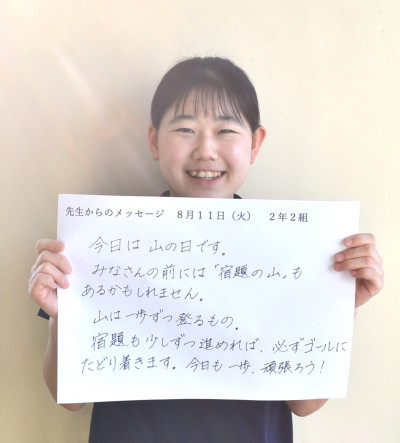 先生からのメッセージ　8月11日（火）　2年2組
今日は山の日です。
みなさんの前には「宿題の山」も
あるかもしれません。
山は一歩ずつ登るもの。
宿題も少しずつ進めれば、必ずゴールに
たどり着きます。今日も一歩、頑張ろう！